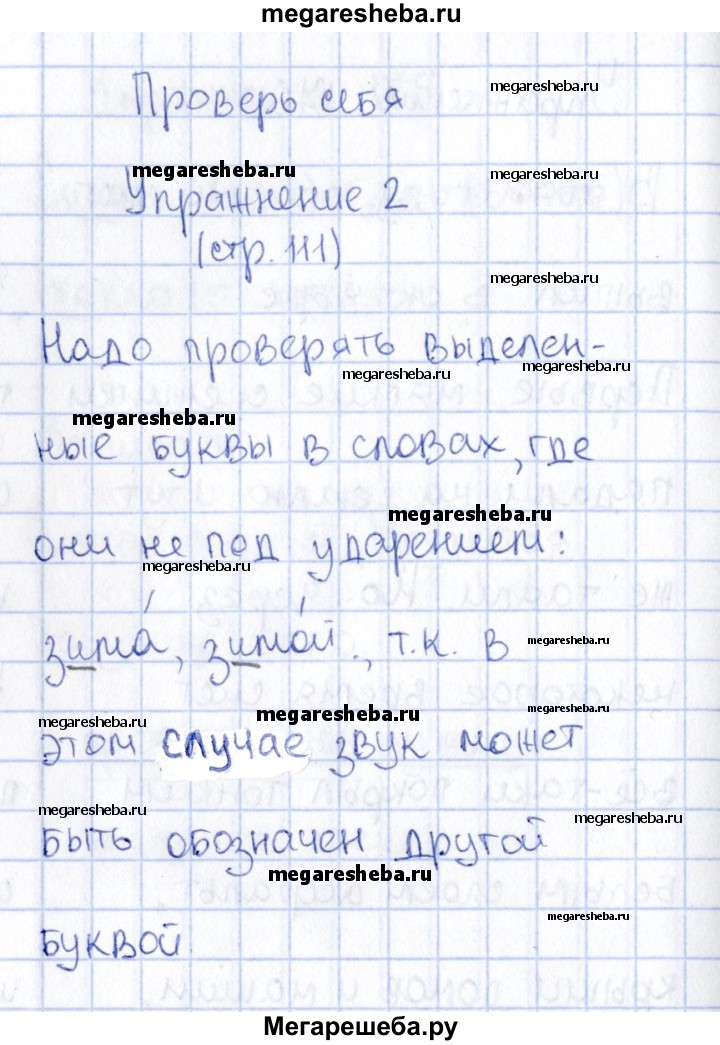 megaresheba.ru
Проверь себя
megaresheba.ru
megaresheba.ru
megaresheba.ru
Упражнение 2
(стр. 111)
megaresheba.ru
Надо проверять выделен-
megaresheba.ru
megaresheba.ru
megaresheba.ru
ные буквы в словах, где
megaresheba.ru
они не под ударением:
megaresheba.ru
зима́, зимо́й., т.к. в
megaresheba.ru
megaresheba.ru
megaresheba.ru
megaresheba.ru
этом случае звук может
megaresheba.ru
megaresheba.ru
быть обозначен другой
megaresheba.ru
megaresheba.ru
буквой.
Мегарешеба.ру